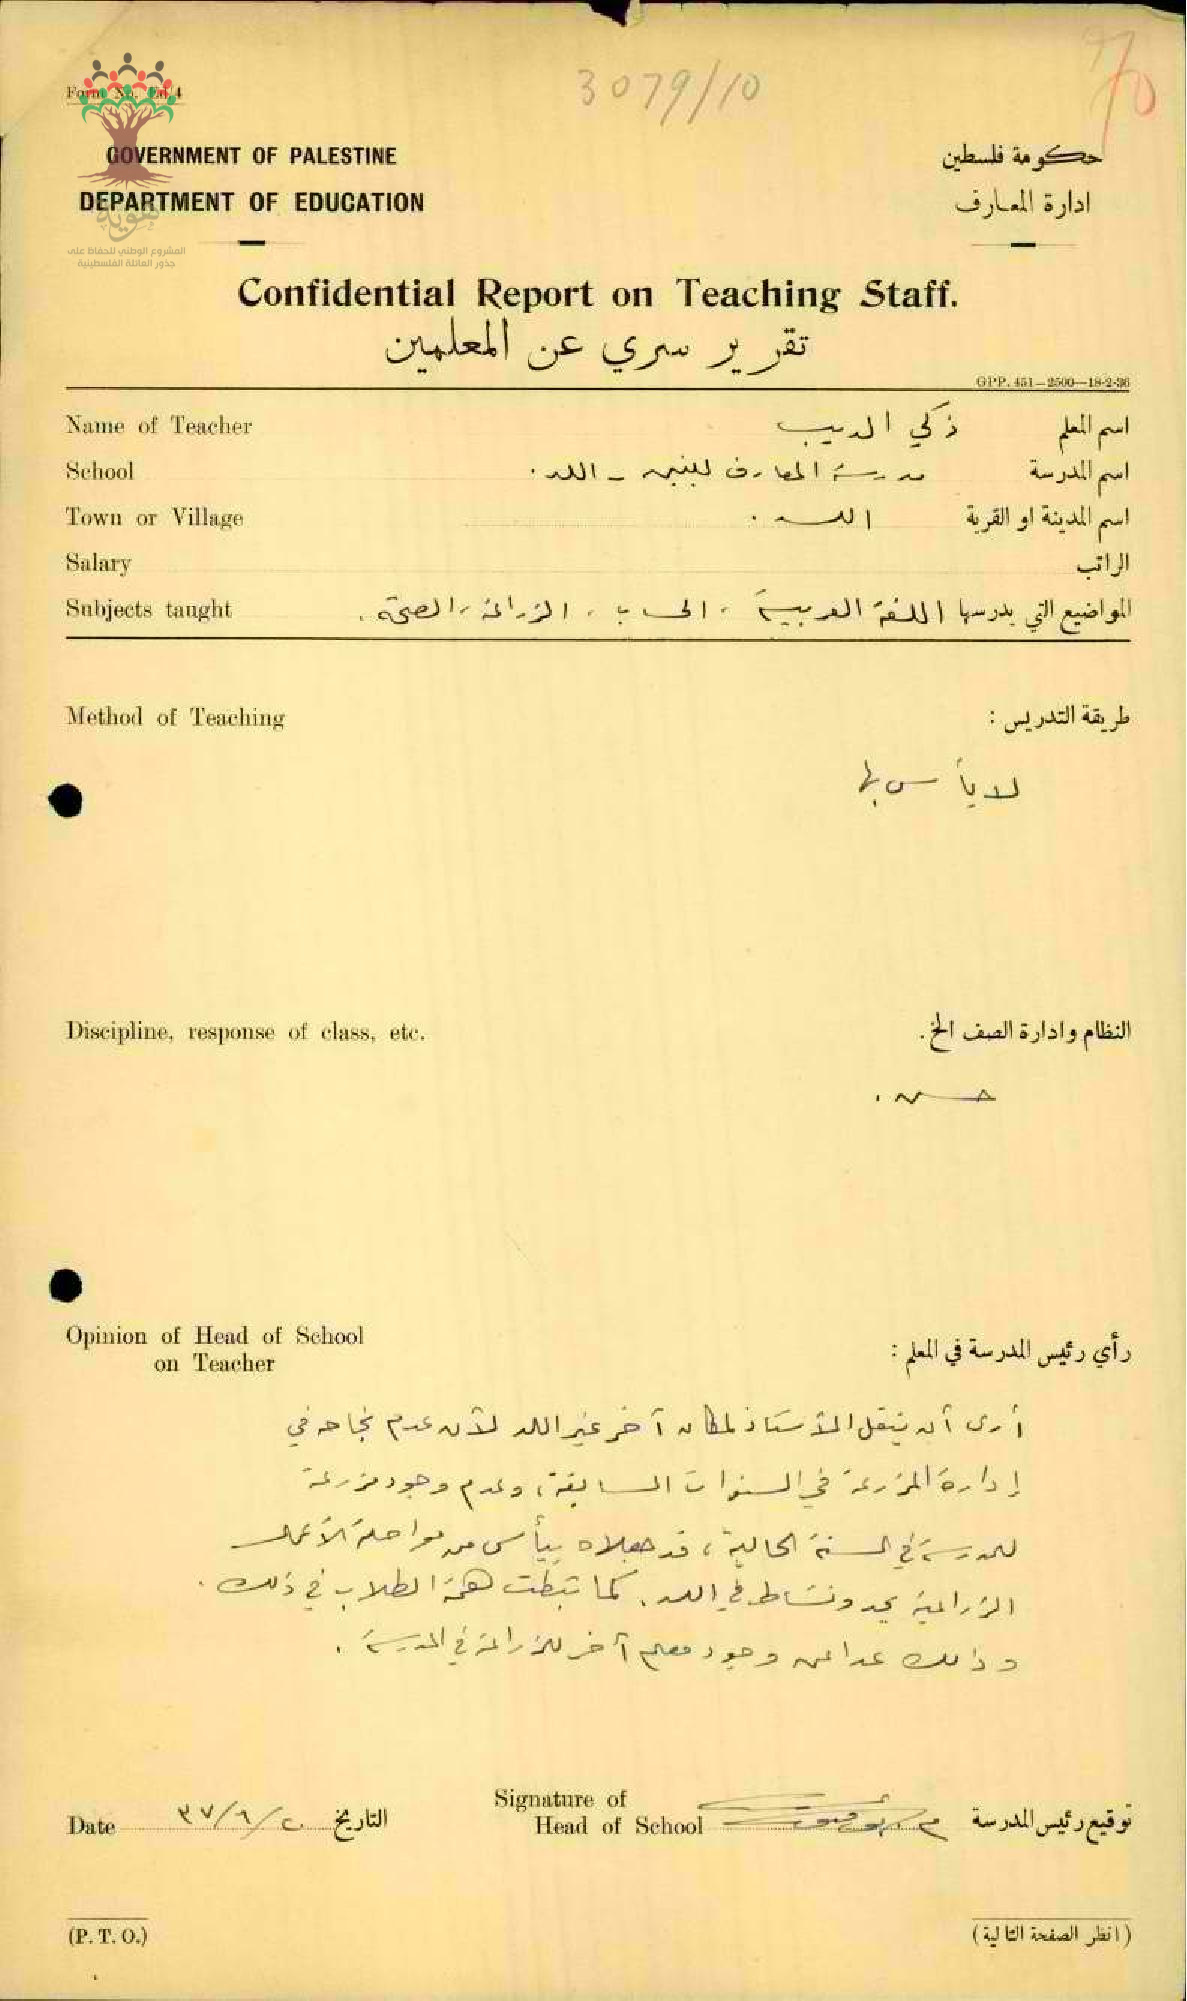 3079/10
70
Form No. Ed.4
GOVERNMENT OF PALESTINE
حكومة فلسطين
DEPARTMENT OF EDUCATION
ادارة المعارف
هوية
المشروع الوطني للحفاظ على
جذور العائلة الفلسطينية
Confidential Report on Teaching Staff.
تقرير سري عن المعلمين
GPP. 451—2500—18-2-36
Name of Teacher ذكي الديب اسم المعلم
School مدرسة المعارف للبنين - اللد. اسم المدرسة
Town or Village اللد. اسم المدينة او القرية
Salary الراتب
Subjects taught المواضيع التي يدرسها اللغة العربية، الحساب، الزراعة، الصحة.
Method of Teaching طريقة التدريس :
لا بأس بها
Discipline, response of class, etc. النظام وادارة الصف الخ.
حسن.
Opinion of Head of School
on Teacher
رأي رئيس المدرسة في المعلم :
أرى أن ينقل الأستاذ لمكان آخر غير اللد لأن عدم نجاحه في
إدارة المزرعة في السنوات السابقة، وعدم وجود مزرعة
للمدرسة في السنة الحالية، قد جعلاه ييأس من مواصلة الأعمال
الزراعية بجد ونشاط في اللد. كما تثبطت همة الطلاب في ذلك.
وذلك عدا عن وجود معلم آخر للزراعة في المدرسة.
Signature of
Head of School توقيع رئيس المدرسة
Date ٢٠/٦/٣٧ التاريخ
(P. T. O.)
(انظر الصفحة التالية)